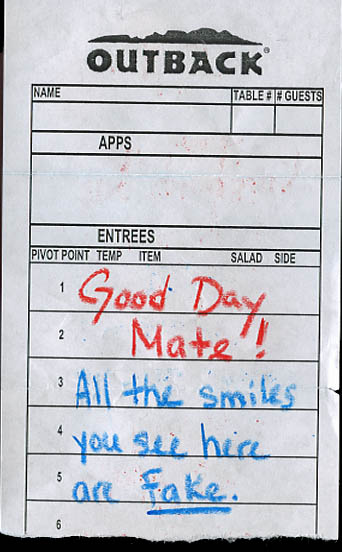 OUTBACK®
NAME TABLE # # GUESTS
APPS
ENTREES
PIVOT POINT TEMP ITEM SALAD SIDE
1 Good Day
2 Mate!
3 All the smiles
4 you see here
5 are Fake.
6